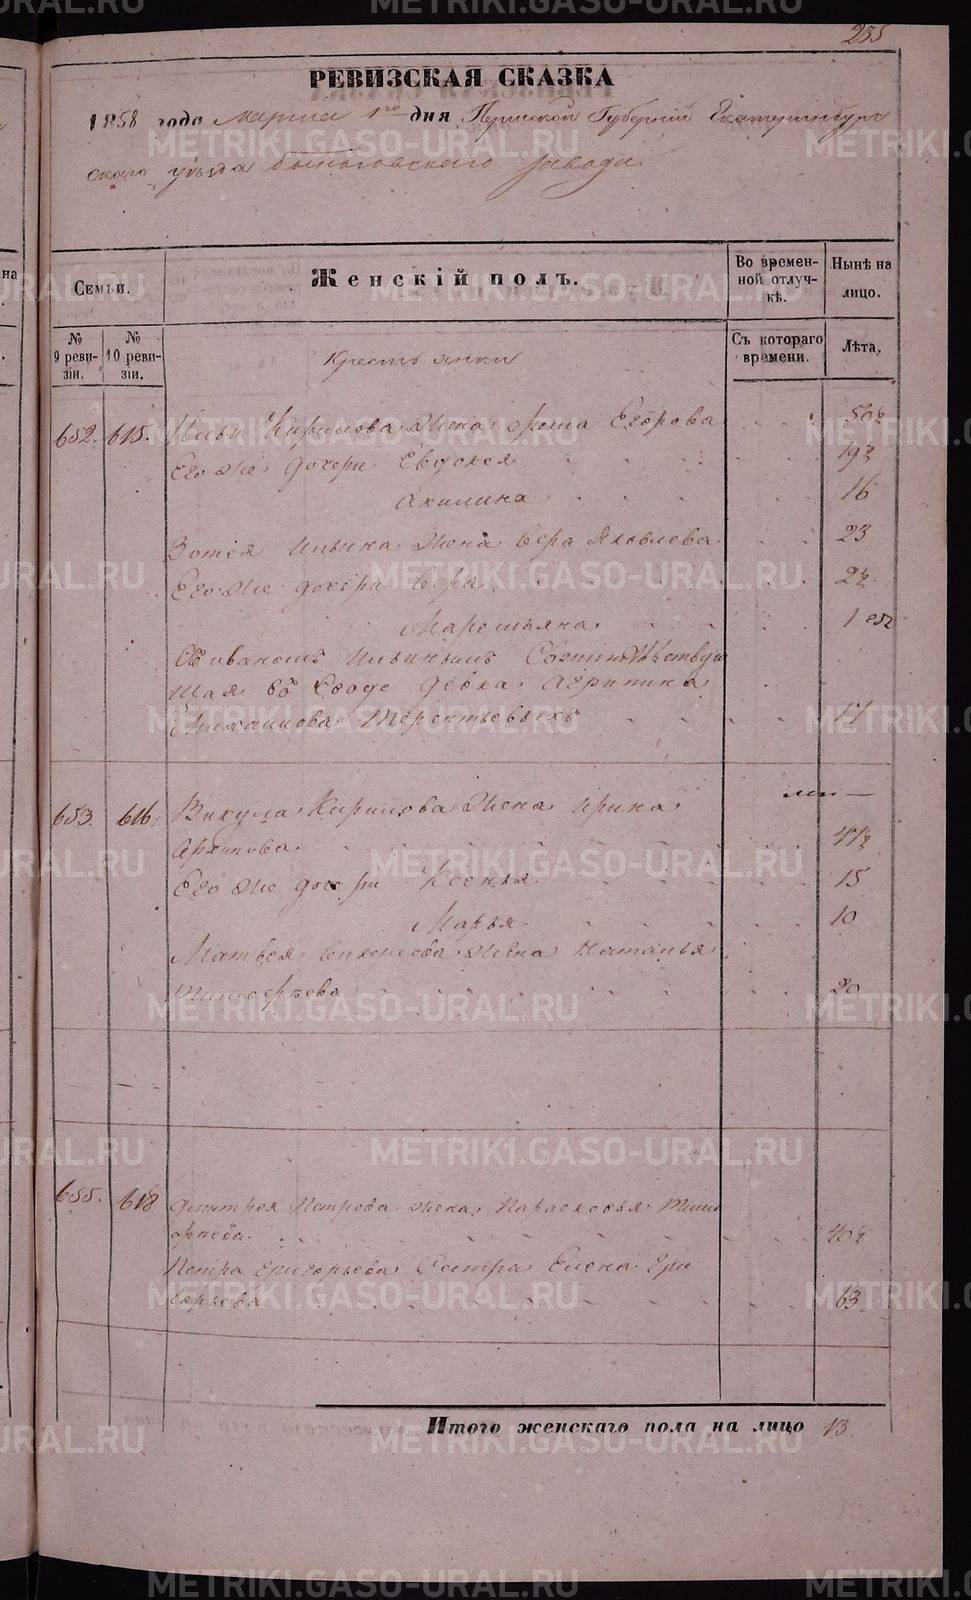 235
РЕВИЗСКАЯ СКАЗКА
1858 года Марта 1го дня Пермской Губерніи Екатеринбург
скаго уѣзда Быньговскаго завода
Семьи.
Женскій полъ.
Во времен-
ной отлуч-
кѣ.
Нынѣ на
лицо.
№
9 реви-
зіи.
№
10 реви-
зіи.
Съ котораго
времени.
Лѣта.
Крестьянки
652. 615. Ильи Кирилова жена Егорова 50½
Его же дочери Евдокея 19½
Акилина 16
Зотея Ильина жена Вера Яковлева 23
Его же дочери Вера 2½
Маремьяна 1
Съ Иваномъ Ильинымъ
щая въ девка Агрипина
Терентьевыхъ 17
653. 616. Викула Кирилова жена Ирина
Архипова 47½
Его же дочери Ксенья 15
Марья 10
Матвея жена Наталья
Тимофѣева 20
655. 618 Дмитрея Петрова жена Парасковья Тимо
фѣева 40½
Петра Григорьева Сестра Елена Гри
горьева 63
Итого женскаго пола на лицо 13
METRIKI.GASO-URAL.RU